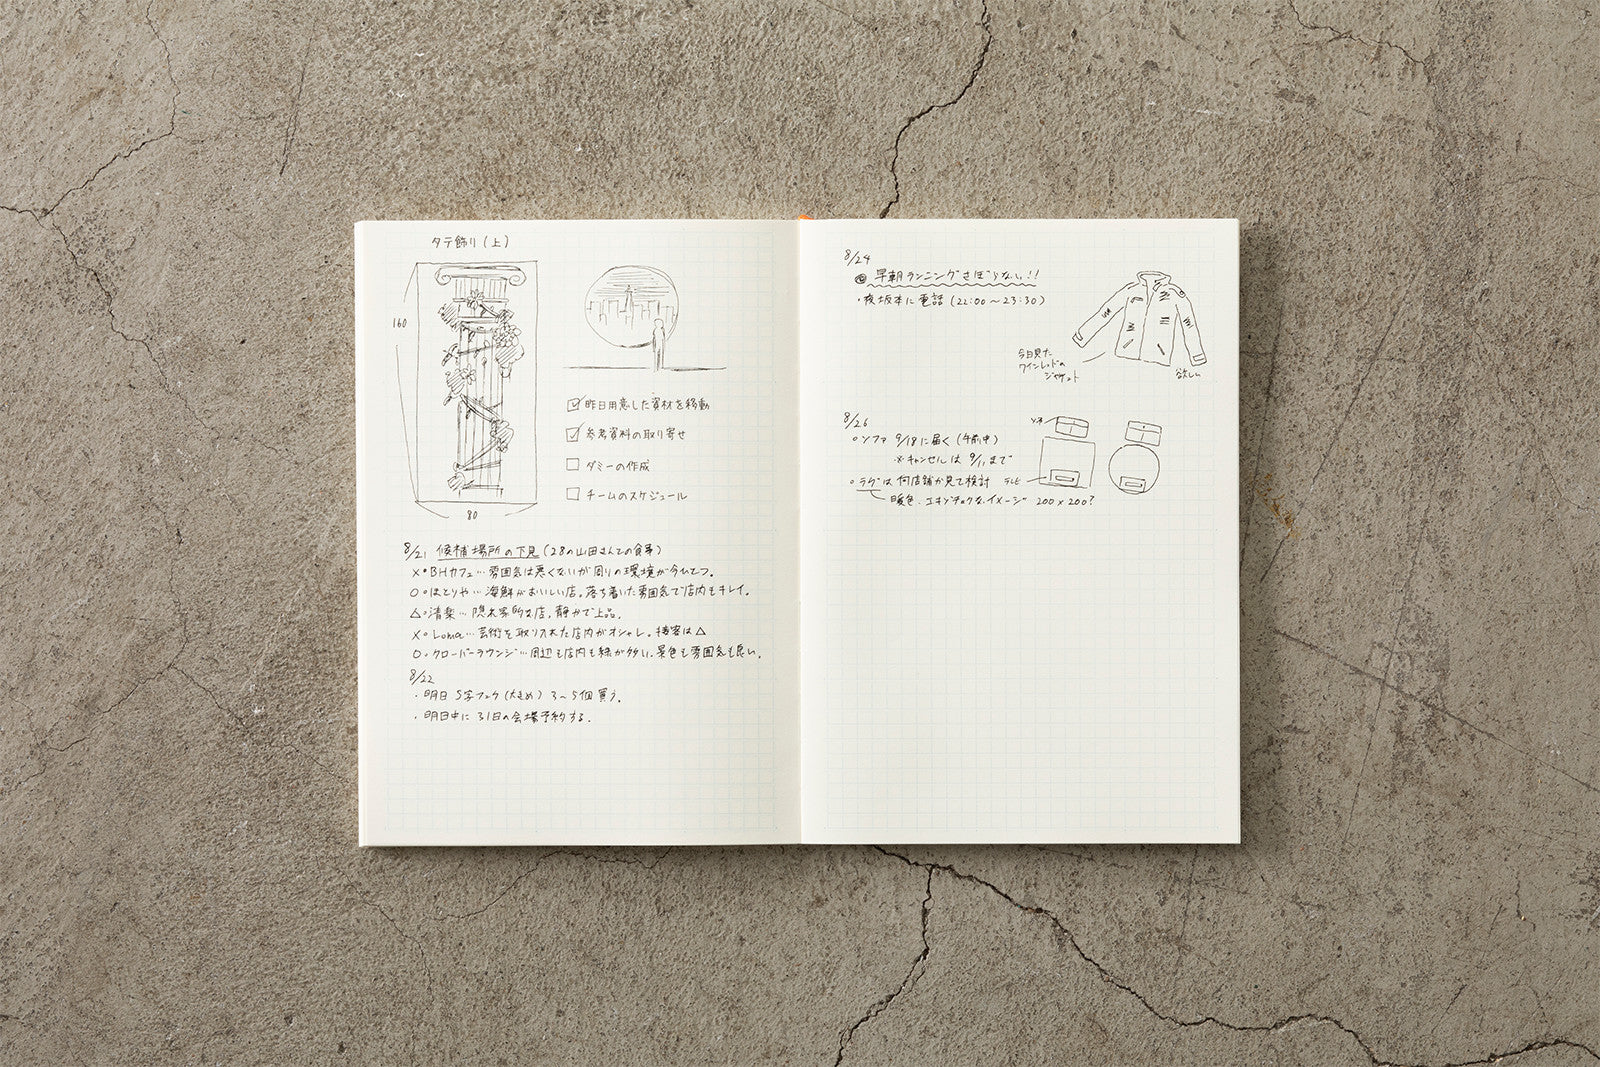 タテ飾り(上)
160
80
☑昨日用意した資材を移動
☑参考資料の取り寄せ
□ダミーの作成
□チームのスケジュール
8/21 候補場所の下見(28の山田さんとの食事)
×・BHカフェ…雰囲気は悪くないが周りの環境が今ひとつ。
○・ほとりや…海鮮がおいしい店。落ち着いた雰囲気で店内もキレイ。
△・清楽…隠れ家的な店。静かで上品。
×・Loma…芸術を取り入れた店内がオシャレ。接客は△
○・クローバーラウンジ…周辺も店内も緑が多い。景色も雰囲気も良い。
8/22
・明日 S字フック(大きめ) 3〜5個買う。
・明日中に31日の会場予約する。
8/24
◎早朝ランニングさぼらない!!
・夜坂本に電話(22:00〜23:30)
今日見た
ワインレッドの
ジャケット
欲しい
8/26
○ソファ 9/18に届く(午前中)
※キャンセルは 9/11まで
○ラグは何店舗か見て検討
暖色.エキゾチックなイメージ 200×200?
ソファ
テレビ